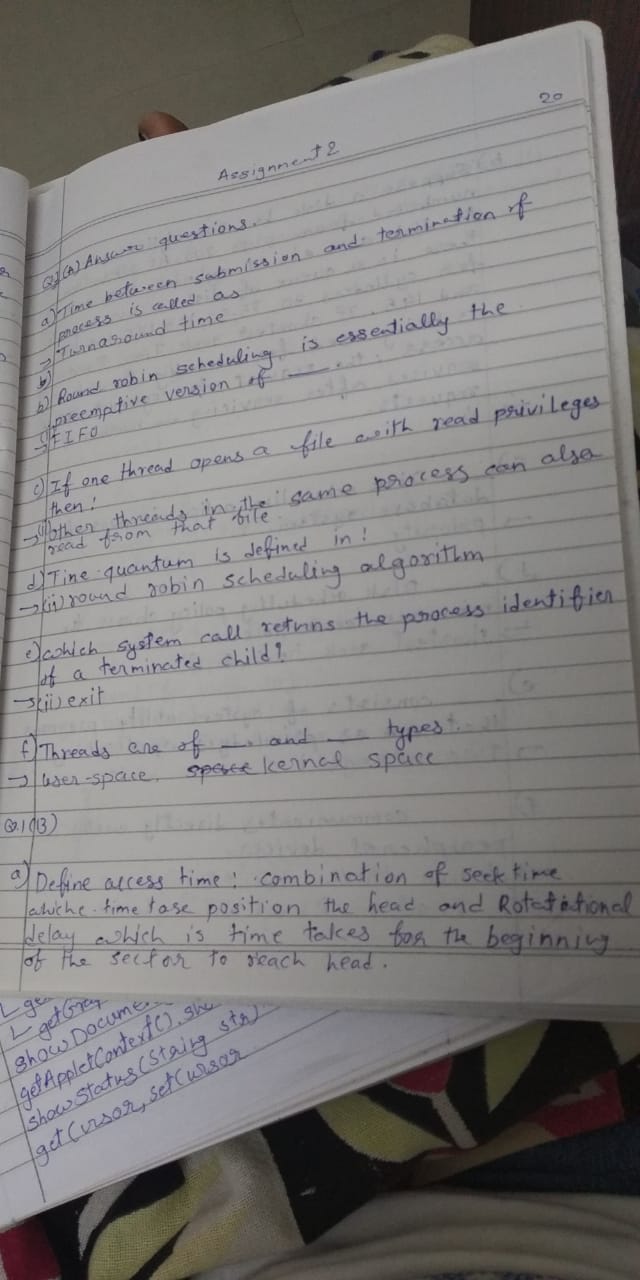 20
Assignment 2
Q.1(A) Answer questions.
a) Time between submission and termination of
process is called as
→ Turnaround time
b)
b) Round robin scheduling is essentially the
preemptive version of ___.
→ FIFO
c) If one thread opens a file with read privileges
then:
→ other threads in the same process can also
read from that file
d) Tine quantum is defined in:
→ (ii) round robin scheduling algorithm
e) which system call retuns the process identifier
of a terminated child?
→ (ii) exit
f) Threads are of ___ and ___ types.
→ user-space. space kernal space
Q.1(B)
a) Define access time: combination of seek time
time position the head and Rotational
delay which is time takes for the beginning
of the sector to reach head.
showDocume
getAppletContext(). sho
showStatus(String str)
getCursor, setCursor